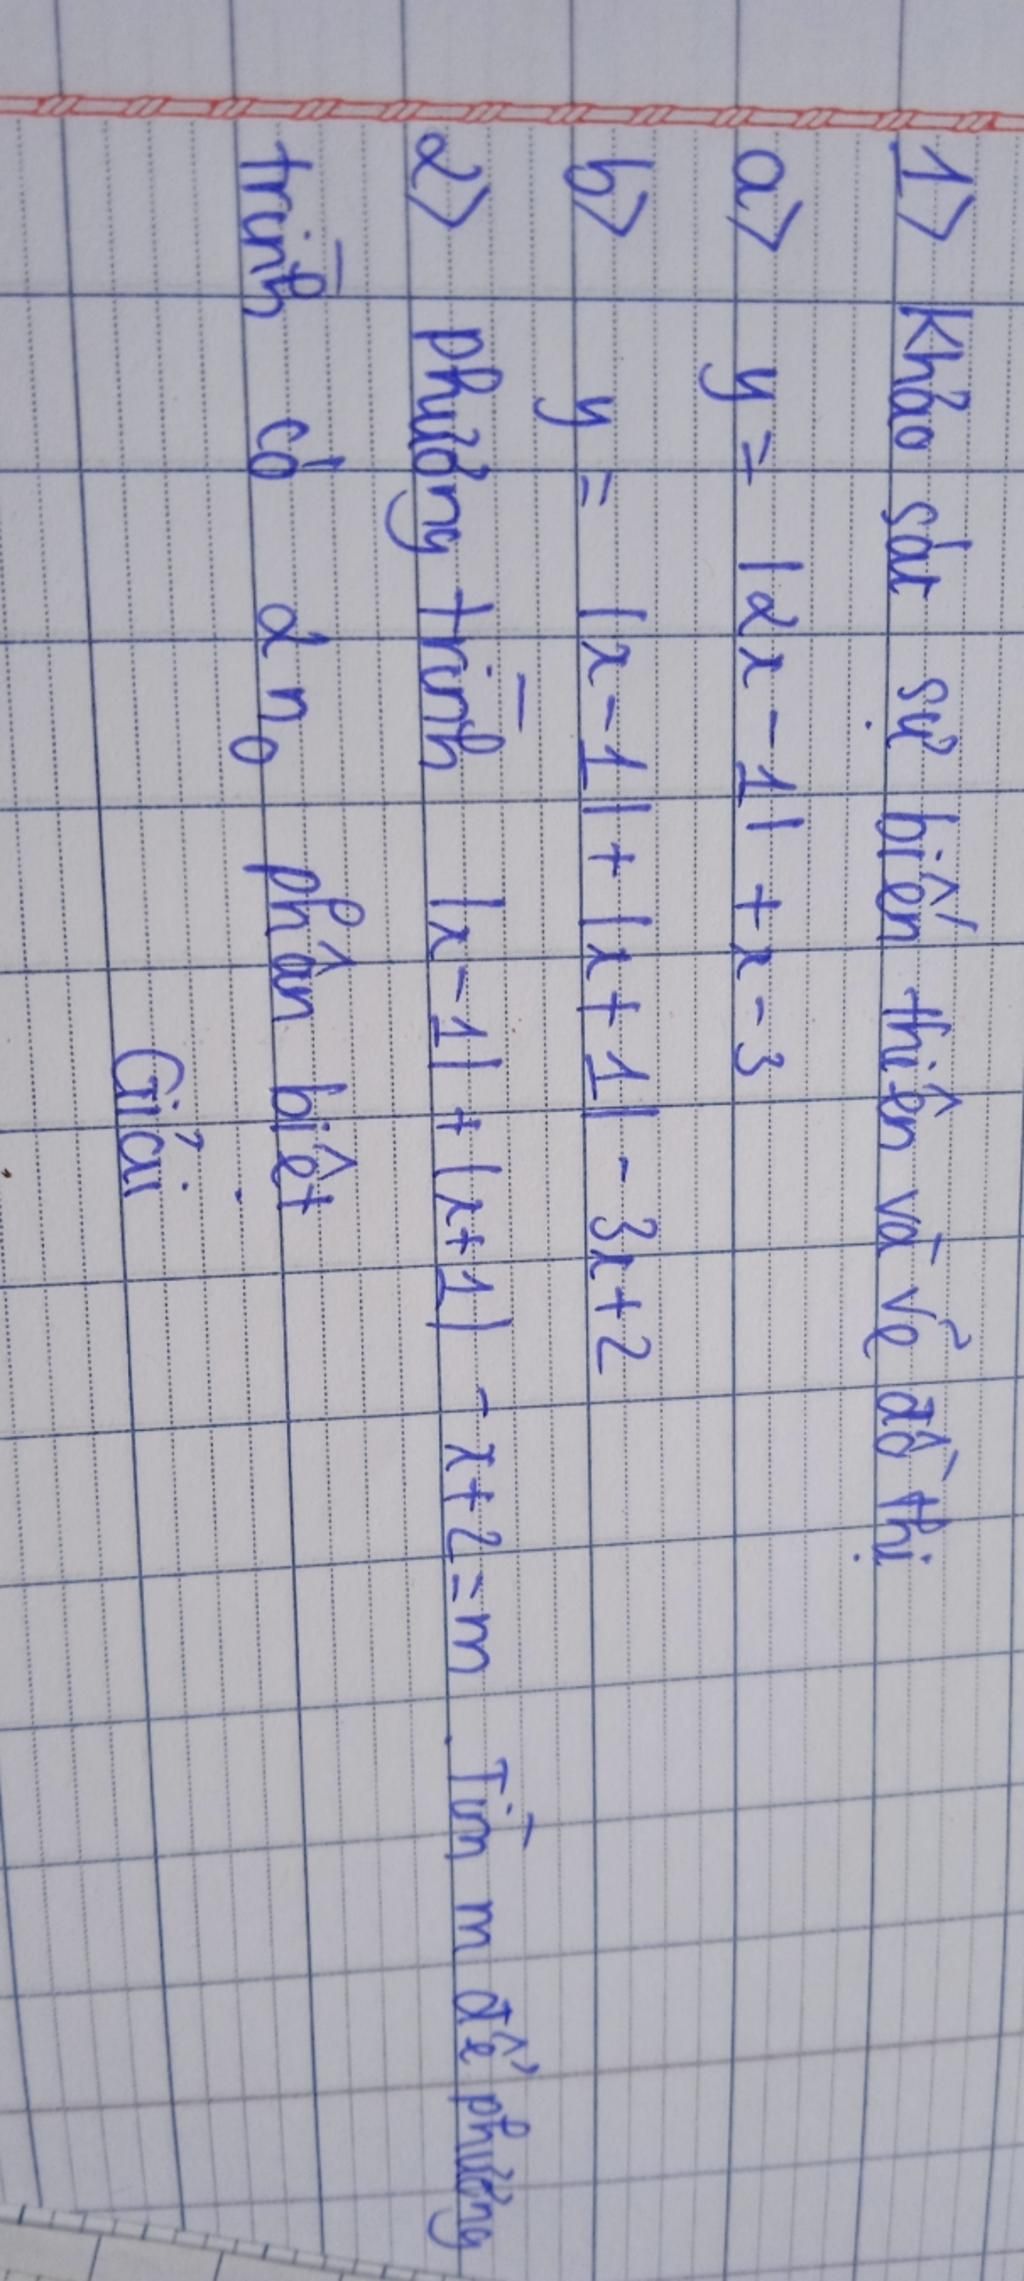 1> Khảo sát sự biến thiên và vẽ đồ thị
a> y = |2x - 1| + x - 3
b> y = |x - 1| + |x + 1| - 3x + 2
2> phương trình |x - 1| + |x + 1| - x + 2 = m. Tìm m để phương
trình có 2 no phân biệt
Giải